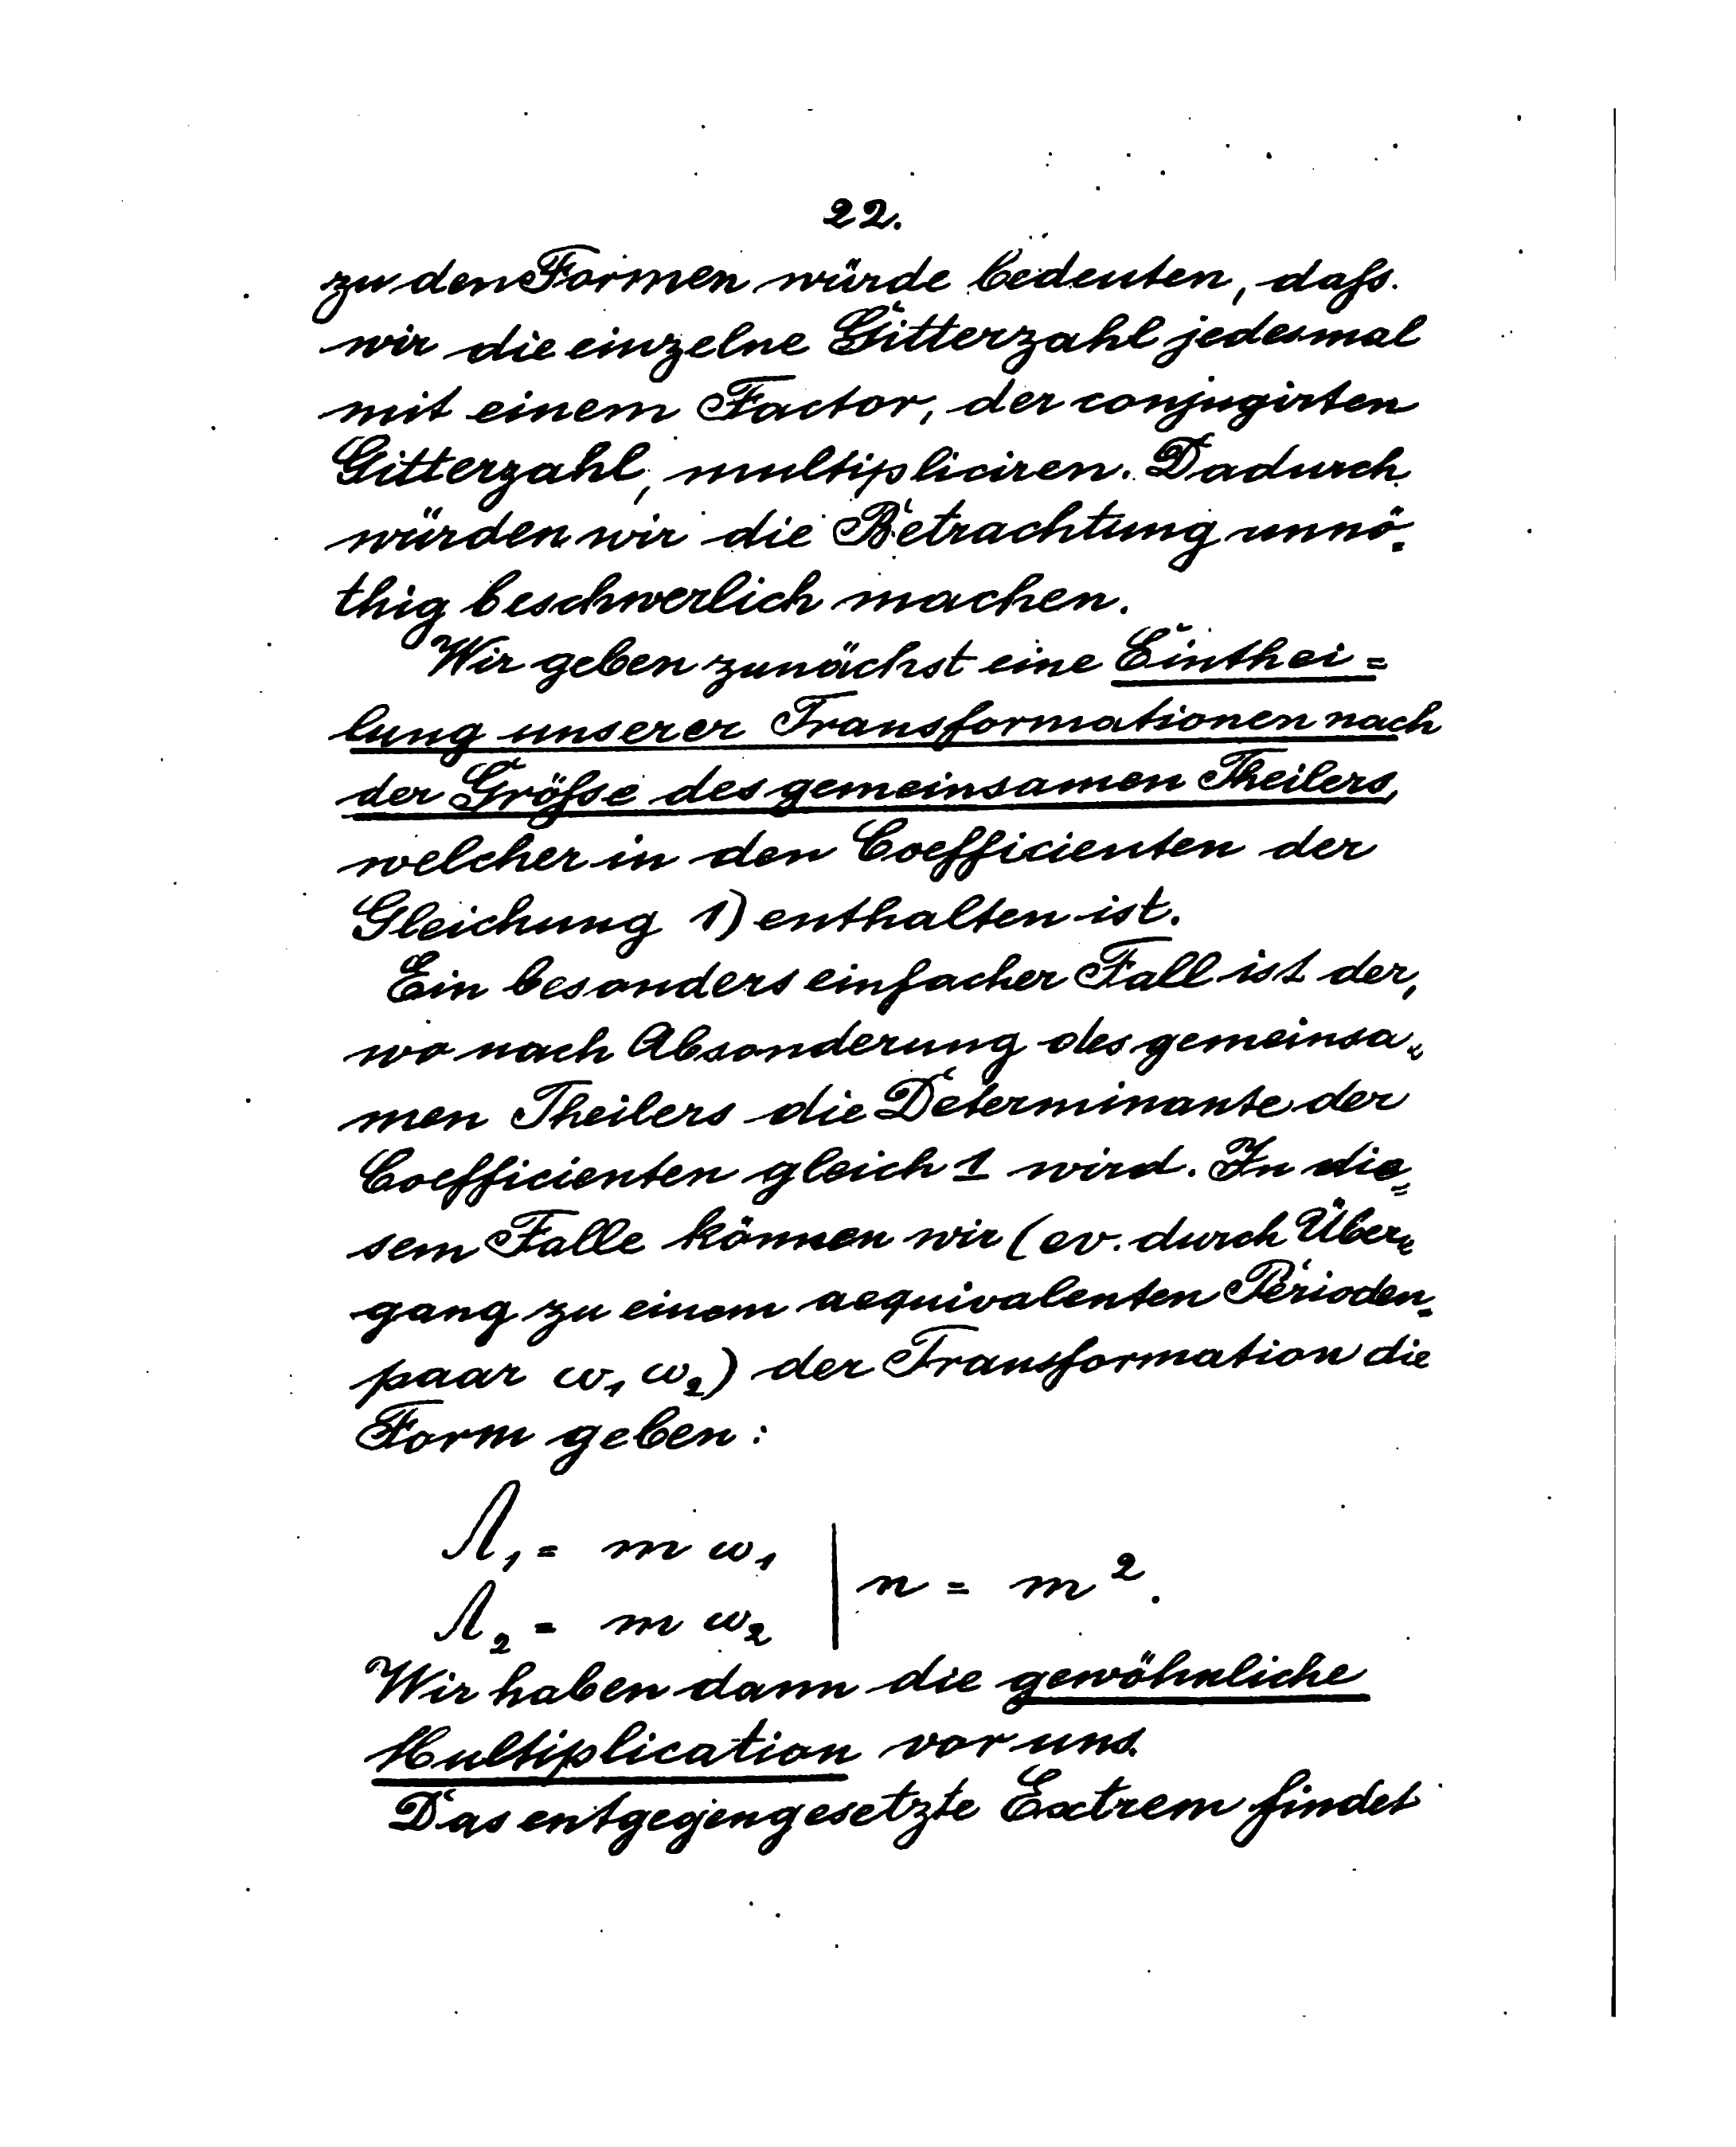 22.
zu den Formen würde bedeuten, daſs
wir die einzelne Gitterzahl jedesmal
mit einem Factor, der conjugirten
Gitterzahl, multipliciren. Dadurch
würden wir die Betrachtung unnö-
thig beschwerlich machen.
Wir geben zunächst eine Einthei=
lung unserer Transformationen nach
der Gröſse des gemeinsamen Theilers,
welcher in den Coefficienten der
Gleichung 1) enthalten ist.
Ein besonders einfacher Fall ist der,
wo nach Absonderung des gemeinsa=
men Theilers die Determinante der
Coefficienten gleich 1 wird. In die=
sem Falle können wir (ev. durch Über=
gang zu einem aequivalenten Perioden=
paar ω₁ ω₂) der Transformation die
Form geben:
Λ₁ = m ω₁
Λ₂ = m ω₂ | n = m².
Wir haben dann die gewöhnliche
Multiplication vor uns.
Das entgegengesetzte Extrem findet